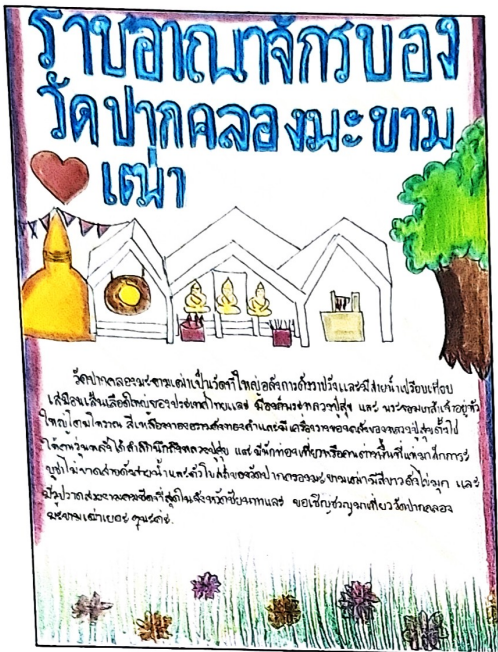 ราชอาณาจักรของ
วัดปากคลองมะขาม
เฒ่า
วัดปากคลองมะขามเฒ่าเป็นวัดที่ใหญ่อลังการดั่งราชวังและมีสายน้ำเปรียบเทียบ
เสมือนเส้นเลือดใหญ่ของประเทศไทยและ มีองค์พระหลวงปู่ศุข และ พระจอมเกล้าเจ้าอยู่หัว
ใหญ่โตมโหราณ สีเหลืองทองอร่ามดั่งทองคำและมีเครื่องรางของขลังของหลวงปู่ศุขตั้งไว้
ให้คนรุ่นหลังได้รำลึกนึกถึงหลวงปู่ศุข และมีนักท่องเที่ยวหรือคนต่างพื้นที่แห่มาสักการะ
บูชาไม่ขาดสายดั่งสายน้ำและตัวโบสถ์ของวัดปากคลองมะขามเฒ่ามีสีขาวดั่งไข่มุก และ
ที่สุดในจังหวัดชัยนาทและ ขอเชิญชวญมาเที่ยววัดปากคลอง
มะขามเฒ่าเยอะๆนะค่ะ